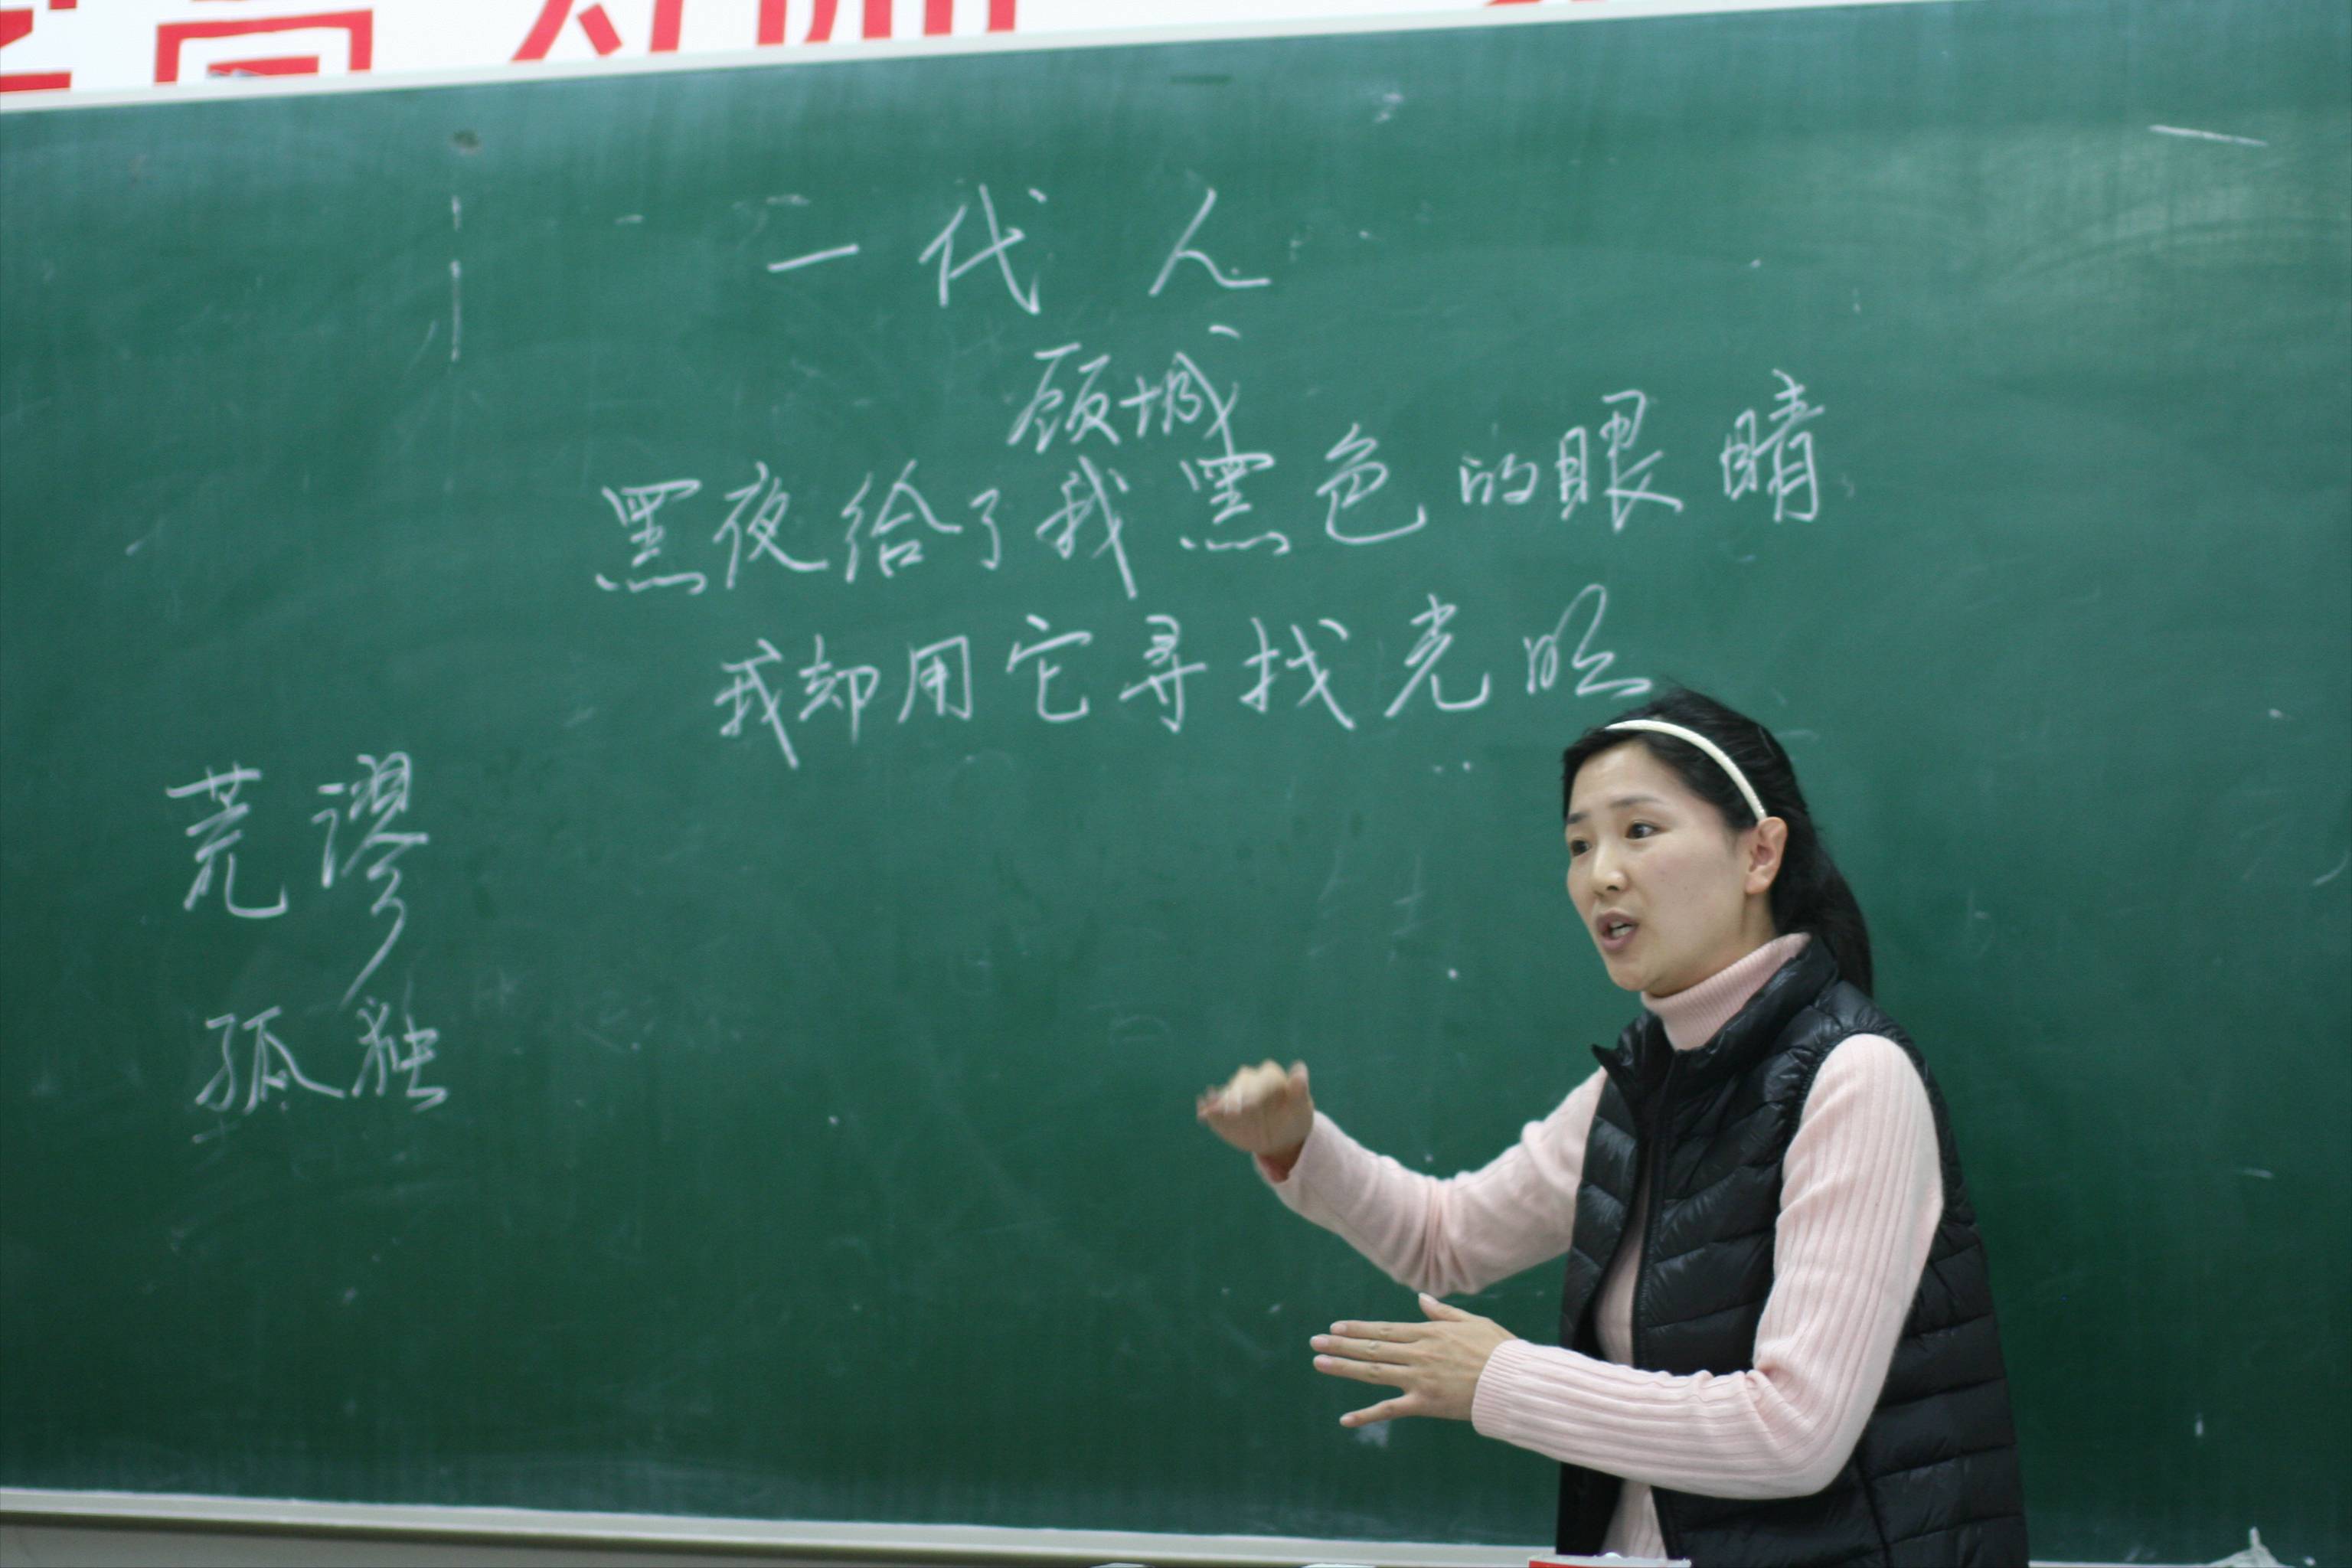 一代人
顾城
黑夜给了我黑色的眼睛
我却用它寻找光明
荒谬
孤独